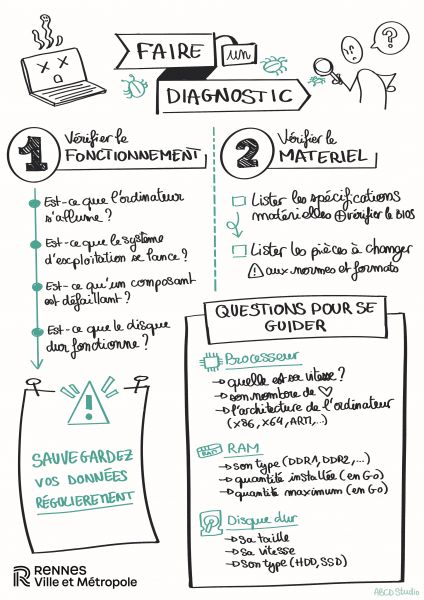 FAIRE
un
DIAGNOSTIC
?
1
Vérifier le
FONCTIONNEMENT
Est-ce que l'ordinateur
s'allume ?
Est-ce que le système
d'exploitation se lance ?
Est-ce qu'un composant
est défaillant ?
Est-ce que le disque
dur fonctionne ?
2
Vérifier le
MATERIEL
Lister les spécifications
matérielles + vérifier le BIOS
Lister les pièces à changer
! aux normes et formats
!
SAUVEGARDEZ
VOS DONNÉES
RÉGULIEREMENT
QUESTIONS POUR SE
GUIDER
Processeur
→ quelle est sa vitesse ?
→ son nombre de ♡
→ l'architecture de l'ordinateur
(x86, x64, ARM,...)
RAM
→ son type (DDR1, DDR2, ...)
→ quantité installée (en Go)
→ quantité maximum (en Go)
Disque dur
→ sa taille
→ sa vitesse
→ son type (HDD, SSD)
RENNES
Ville et Métropole
ABCD Studio